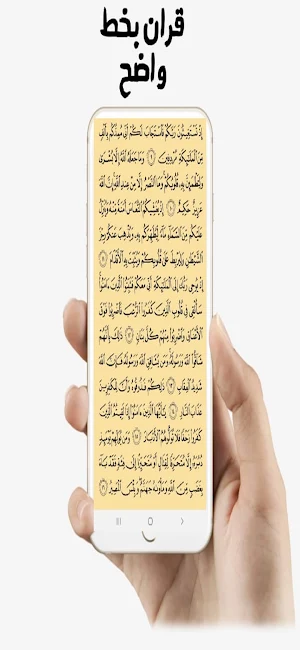 قرآن بخط
واضح
إِذْ تَسْتَغِيثُونَ رَبَّكُمْ فَاسْتَجَابَ لَكُمْ أَنِّي مُمِدُّكُم بِأَلْفٍ
مِّنَ الْمَلَائِكَةِ مُرْدِفِينَ ٩ وَمَا جَعَلَهُ اللَّهُ إِلَّا بُشْرَى
وَلِتَطْمَئِنَّ بِهِ قُلُوبُكُمْ وَمَا النَّصْرُ إِلَّا مِنْ عِندِ اللَّهِ إِنَّ اللَّهَ
عَزِيزٌ حَكِيمٌ ١٠ إِذْ يُغَشِّيكُمُ النُّعَاسَ أَمَنَةً مِّنْهُ وَيُنَزِّلُ
عَلَيْكُم مِّنَ السَّمَاءِ مَاءً لِّيُطَهِّرَكُم بِهِ وَيُذْهِبَ عَنكُمْ رِجْزَ
الشَّيْطَانِ وَلِيَرْبِطَ عَلَى قُلُوبِكُمْ وَيُثَبِّتَ بِهِ الْأَقْدَامَ ١١
إِذْ يُوحِي رَبُّكَ إِلَى الْمَلَائِكَةِ أَنِّي مَعَكُمْ فَثَبِّتُوا الَّذِينَ آمَنُوا
سَأُلْقِي فِي قُلُوبِ الَّذِينَ كَفَرُوا الرُّعْبَ فَاضْرِبُوا فَوْقَ
الْأَعْنَاقِ وَاضْرِبُوا مِنْهُمْ كُلَّ بَنَانٍ ١٢ ذَٰلِكَ بِأَنَّهُمْ
شَاقُّوا اللَّهَ وَرَسُولَهُ وَمَن يُشَاقِقِ اللَّهَ وَرَسُولَهُ فَإِنَّ اللَّهَ
شَدِيدُ الْعِقَابِ ١٣ ذَٰلِكُمْ فَذُوقُوهُ وَأَنَّ لِلْكَافِرِينَ
عَذَابَ النَّارِ ١٤ يَا أَيُّهَا الَّذِينَ آمَنُوا إِذَا لَقِيتُمُ الَّذِينَ
كَفَرُوا زَحْفًا فَلَا تُوَلُّوهُمُ الْأَدْبَارَ ١٥ وَمَن يُوَلِّهِمْ يَوْمَئِذٍ
دُبُرَهُ إِلَّا مُتَحَرِّفًا لِّقِتَالٍ أَوْ مُتَحَيِّزًا إِلَى فِئَةٍ فَقَدْ بَاءَ
بِغَضَبٍ مِّنَ اللَّهِ وَمَأْوَاهُ جَهَنَّمُ وَبِئْسَ الْمَصِيرُ ١٦